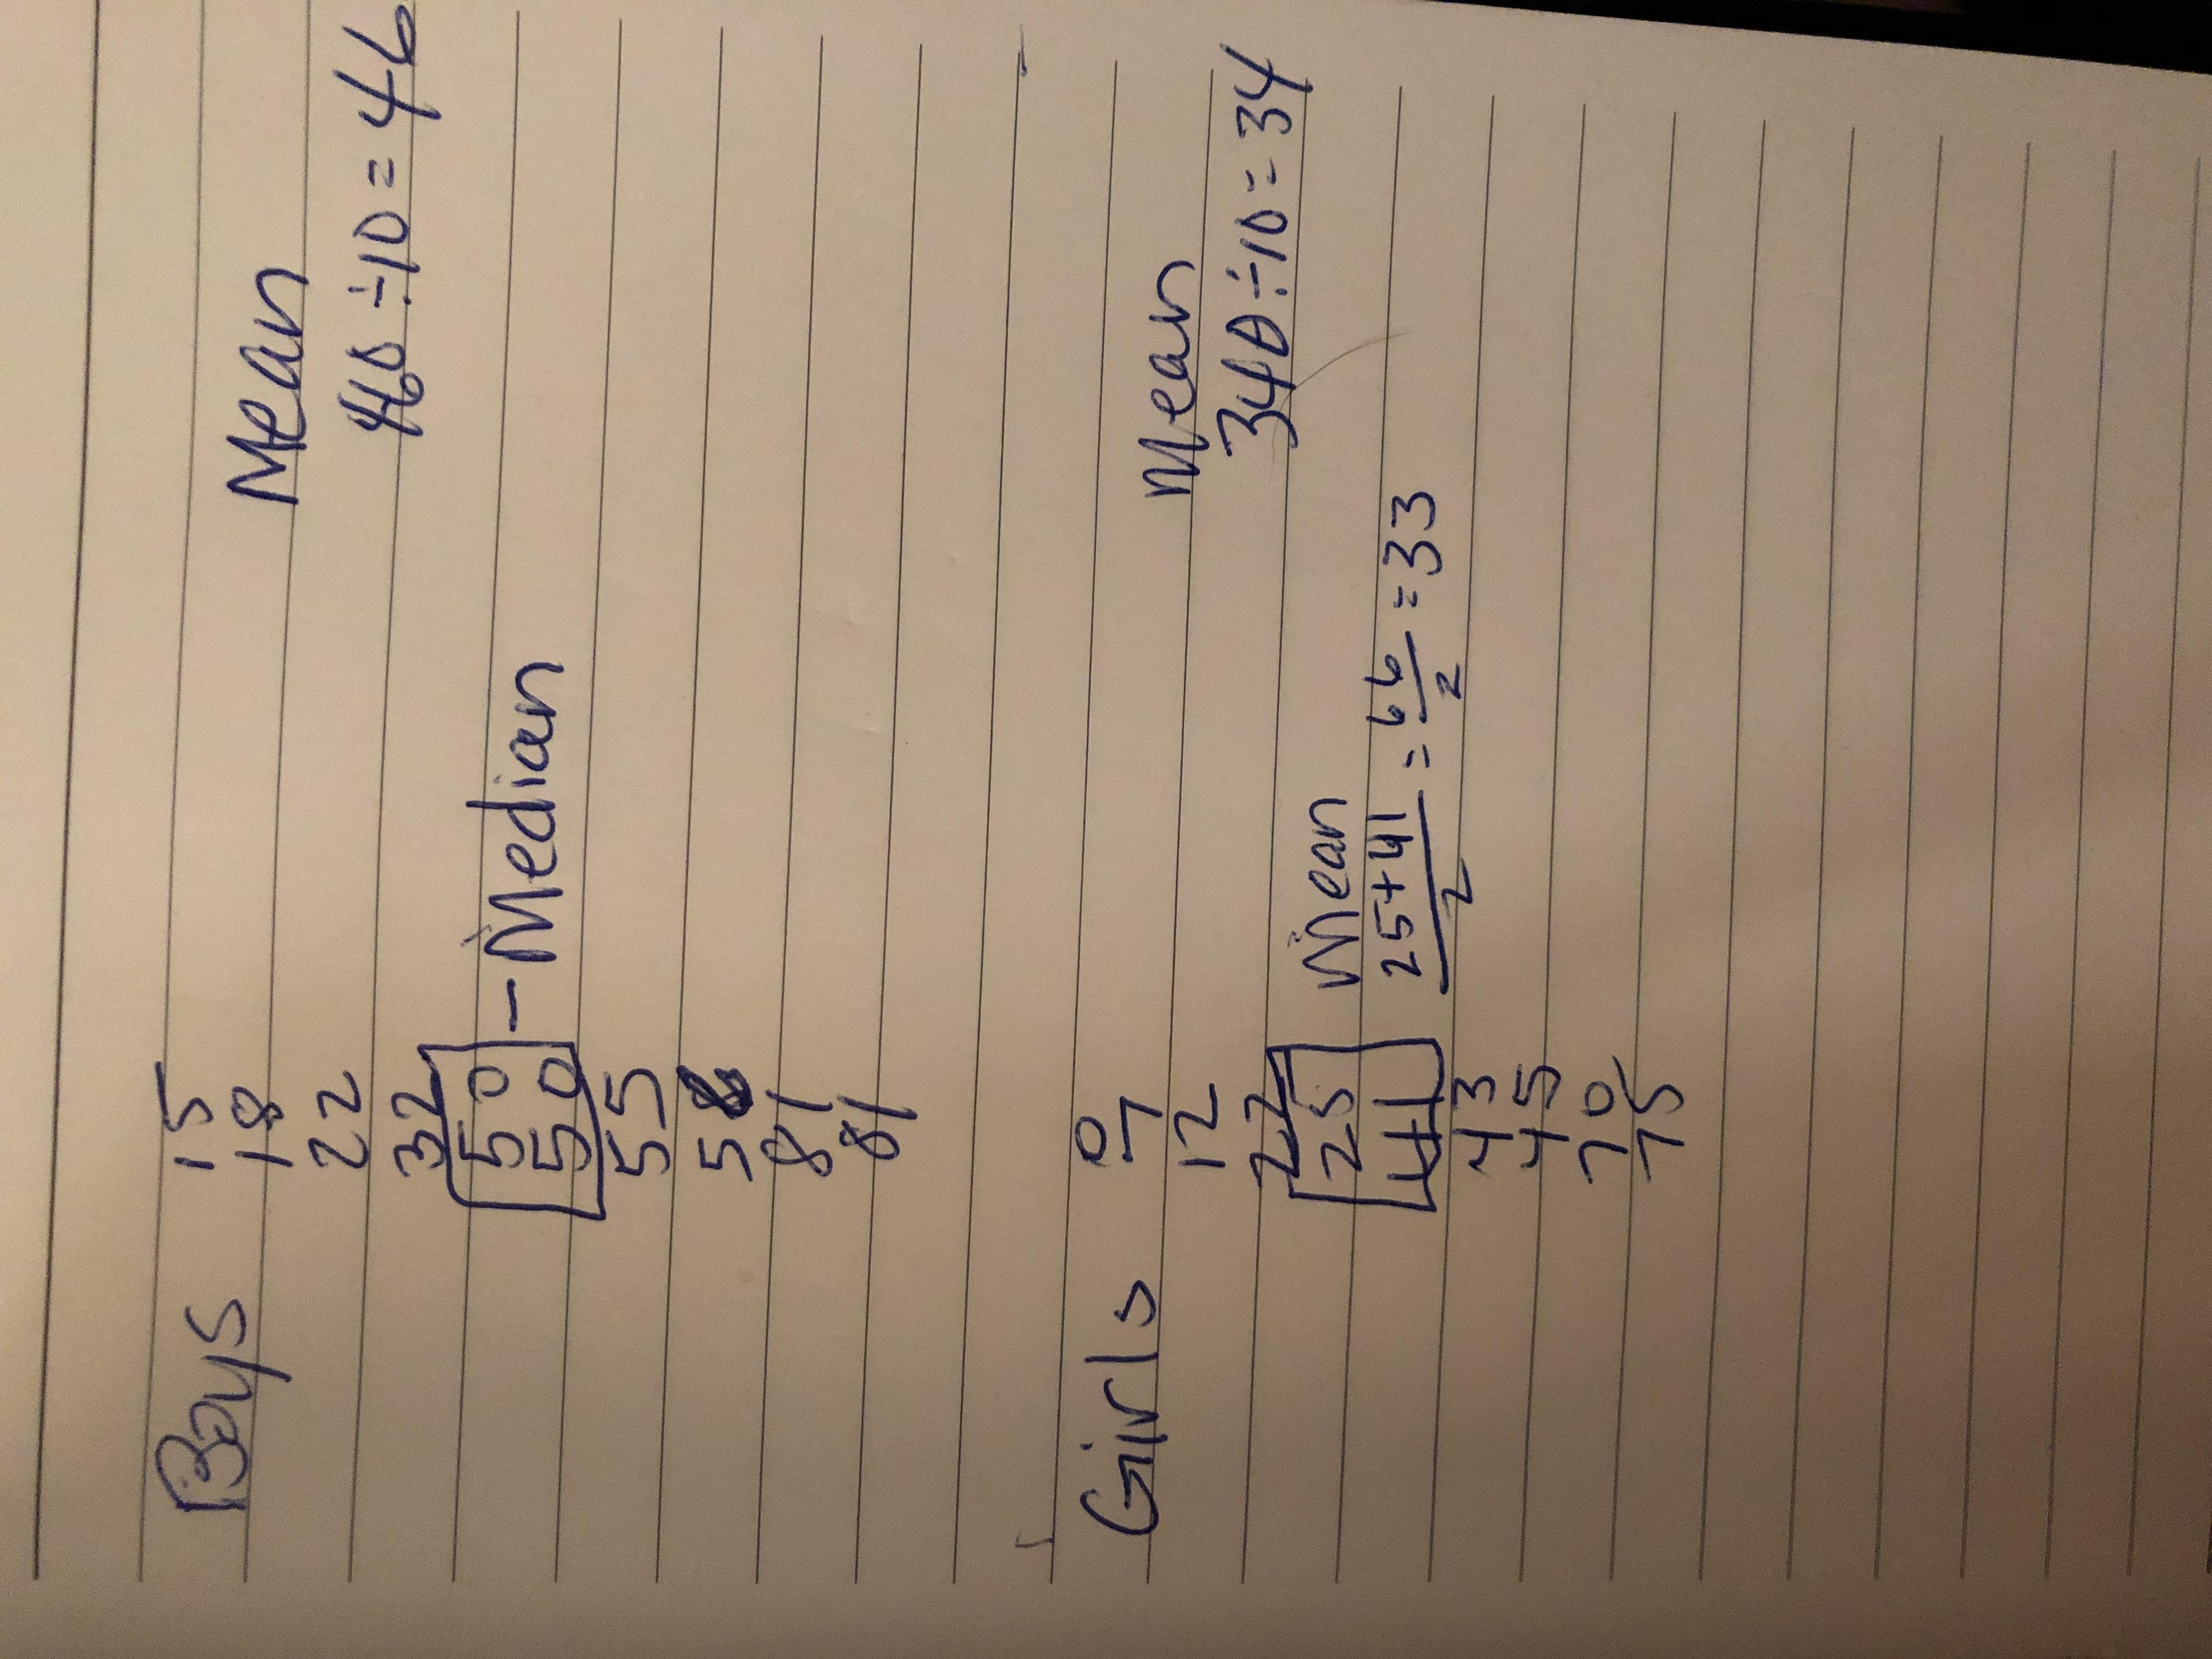 Boys 15
18 Mean
22
32 460 ÷ 10 = 46
50 - Median
50
55
81
81
Girls 0
7 Mean
12 340 ÷ 10 = 34
22
25 Mean
41 25+41/2 = 66/2 = 33
43
45
70
75